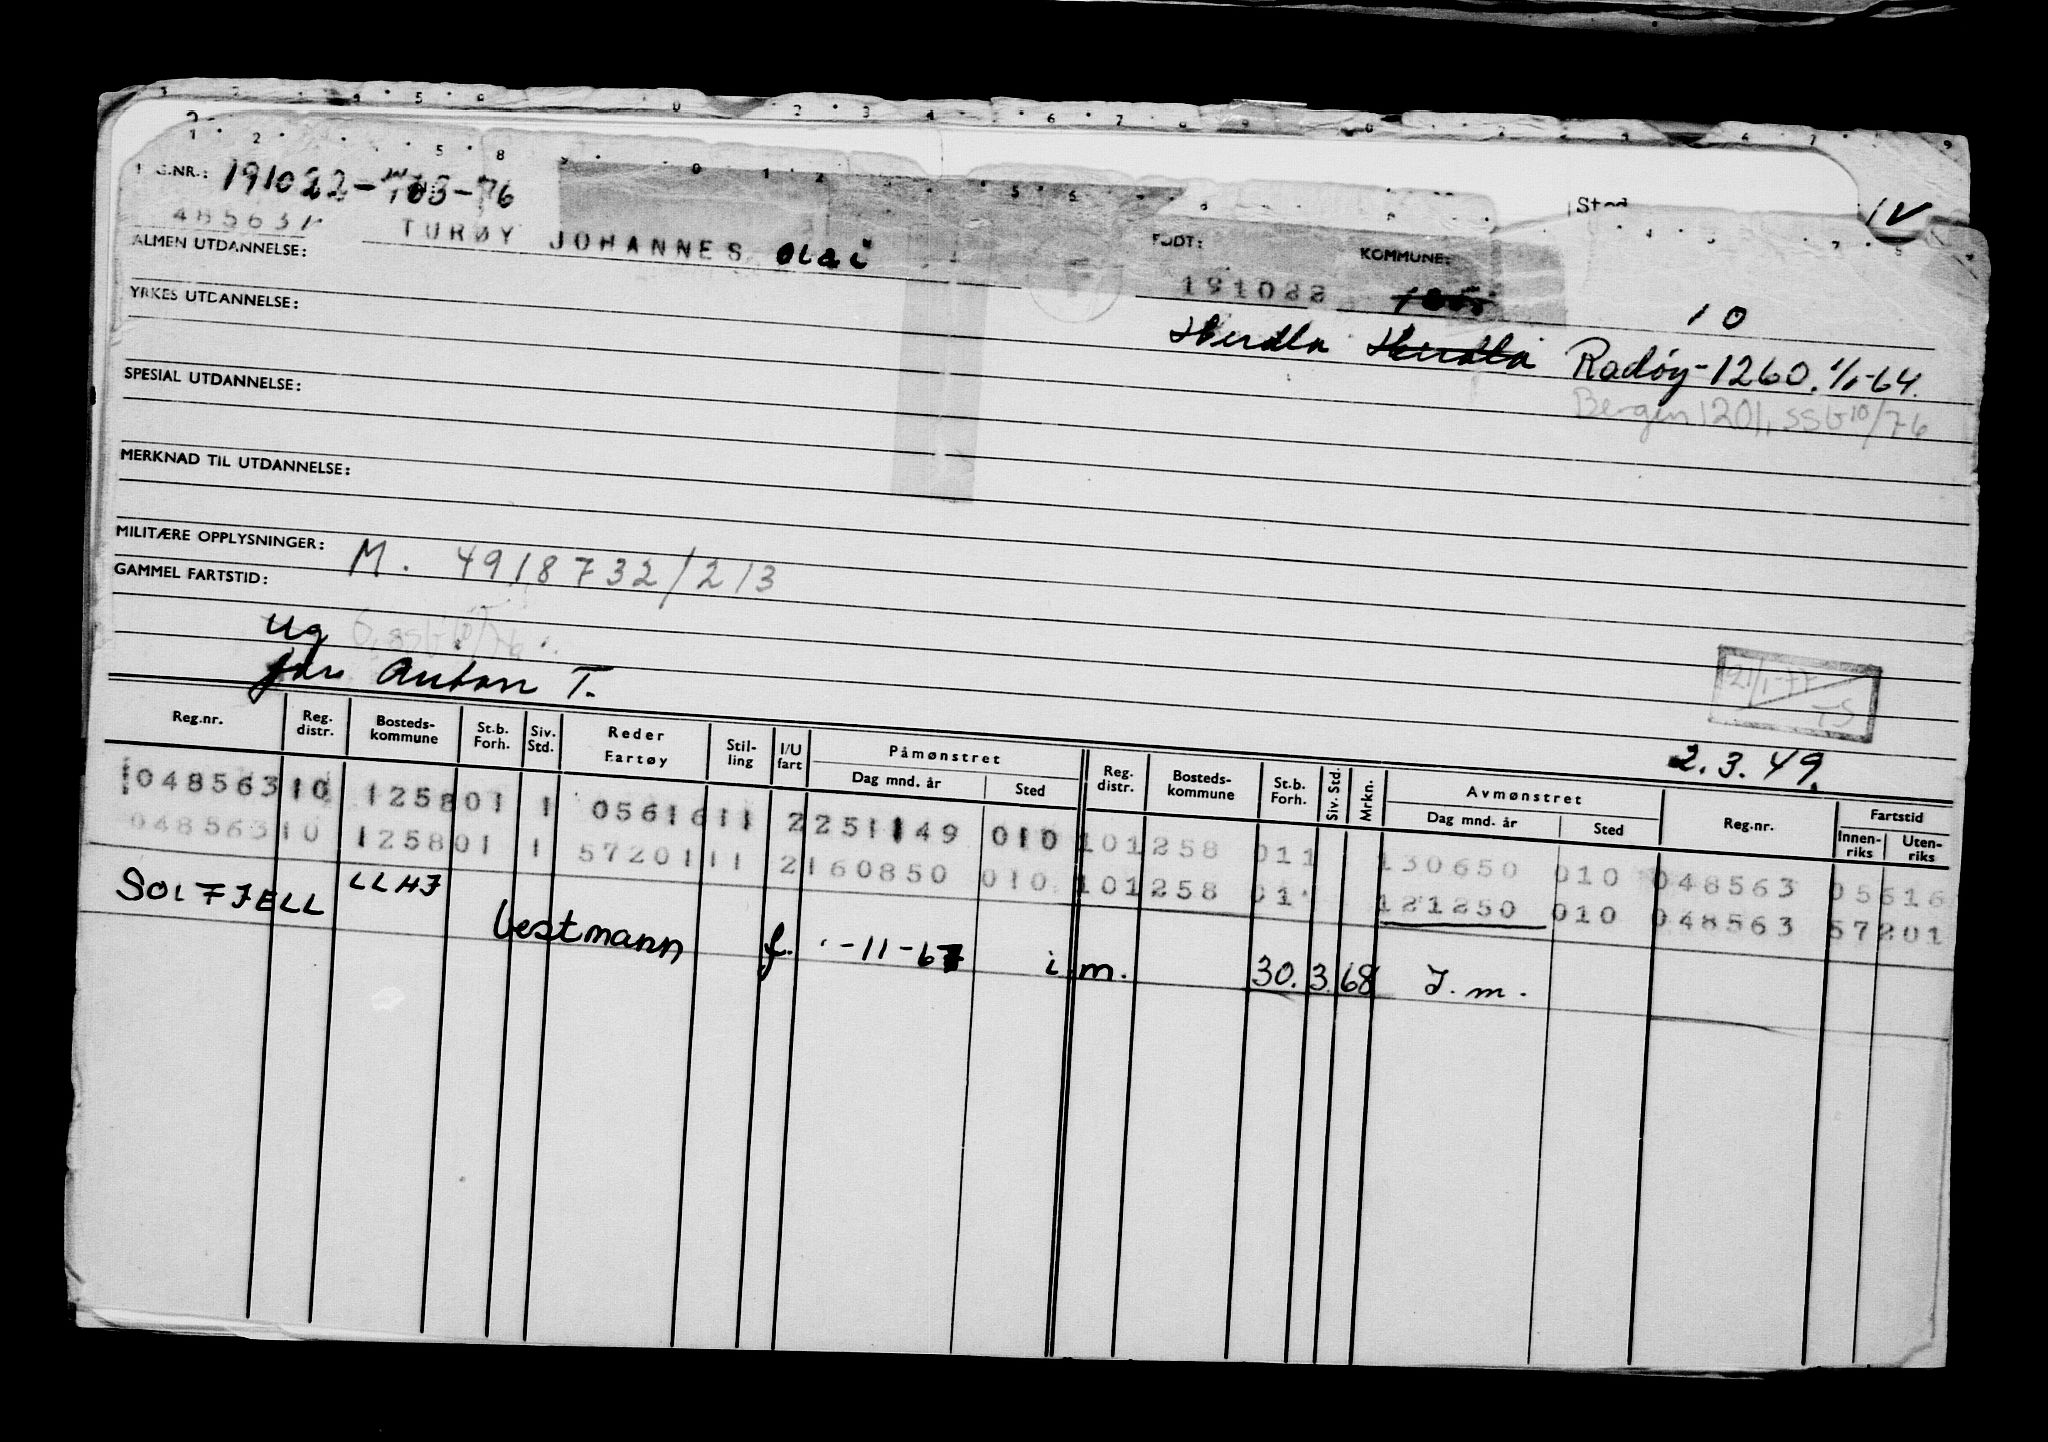 191022-
485631
TURØY JOHANNES Olai
FØDT: 191022
KOMMUNE:
10
ALMEN UTDANNELSE:
Herdla Herdla Radøy-1260. 1/1-64.
YRKES UTDANNELSE:
Bergen 1201, 10/76
SPESIAL UTDANNELSE:
MERKNAD TIL UTDANNELSE:
MILITÆRE OPPLYSNINGER: M. 4918732/213
GAMMEL FARTSTID:
ug
Anton T.
2.3.49.
Reg.nr. Reg. distr. Bosteds-kommune St.b. Forh. Siv. Std. Reder Fartøy Stil-ling I/U fart Påmønstret Dag mnd. år Sted Reg. distr. Bosteds-kommune St.b. Forh. Siv. Std. Mrkn. Avmønstret Dag mnd. år Sted Reg.nr. Fartstid Innen-riks Uten-riks
048563 10 1258 01 1 05616 11 2 251149 010 10 1258 011 130650 010 048563 05616
048563 10 1258 01 1 57201 11 2 160850 010 10 1258 01 121250 010 048563 57201
SOLFJELL LLHJ Vestmann f. -11-67 i m. 30.3.68 I.m.